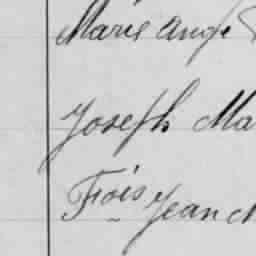 Marie Ange
Joseph Ma
Frois Jean M